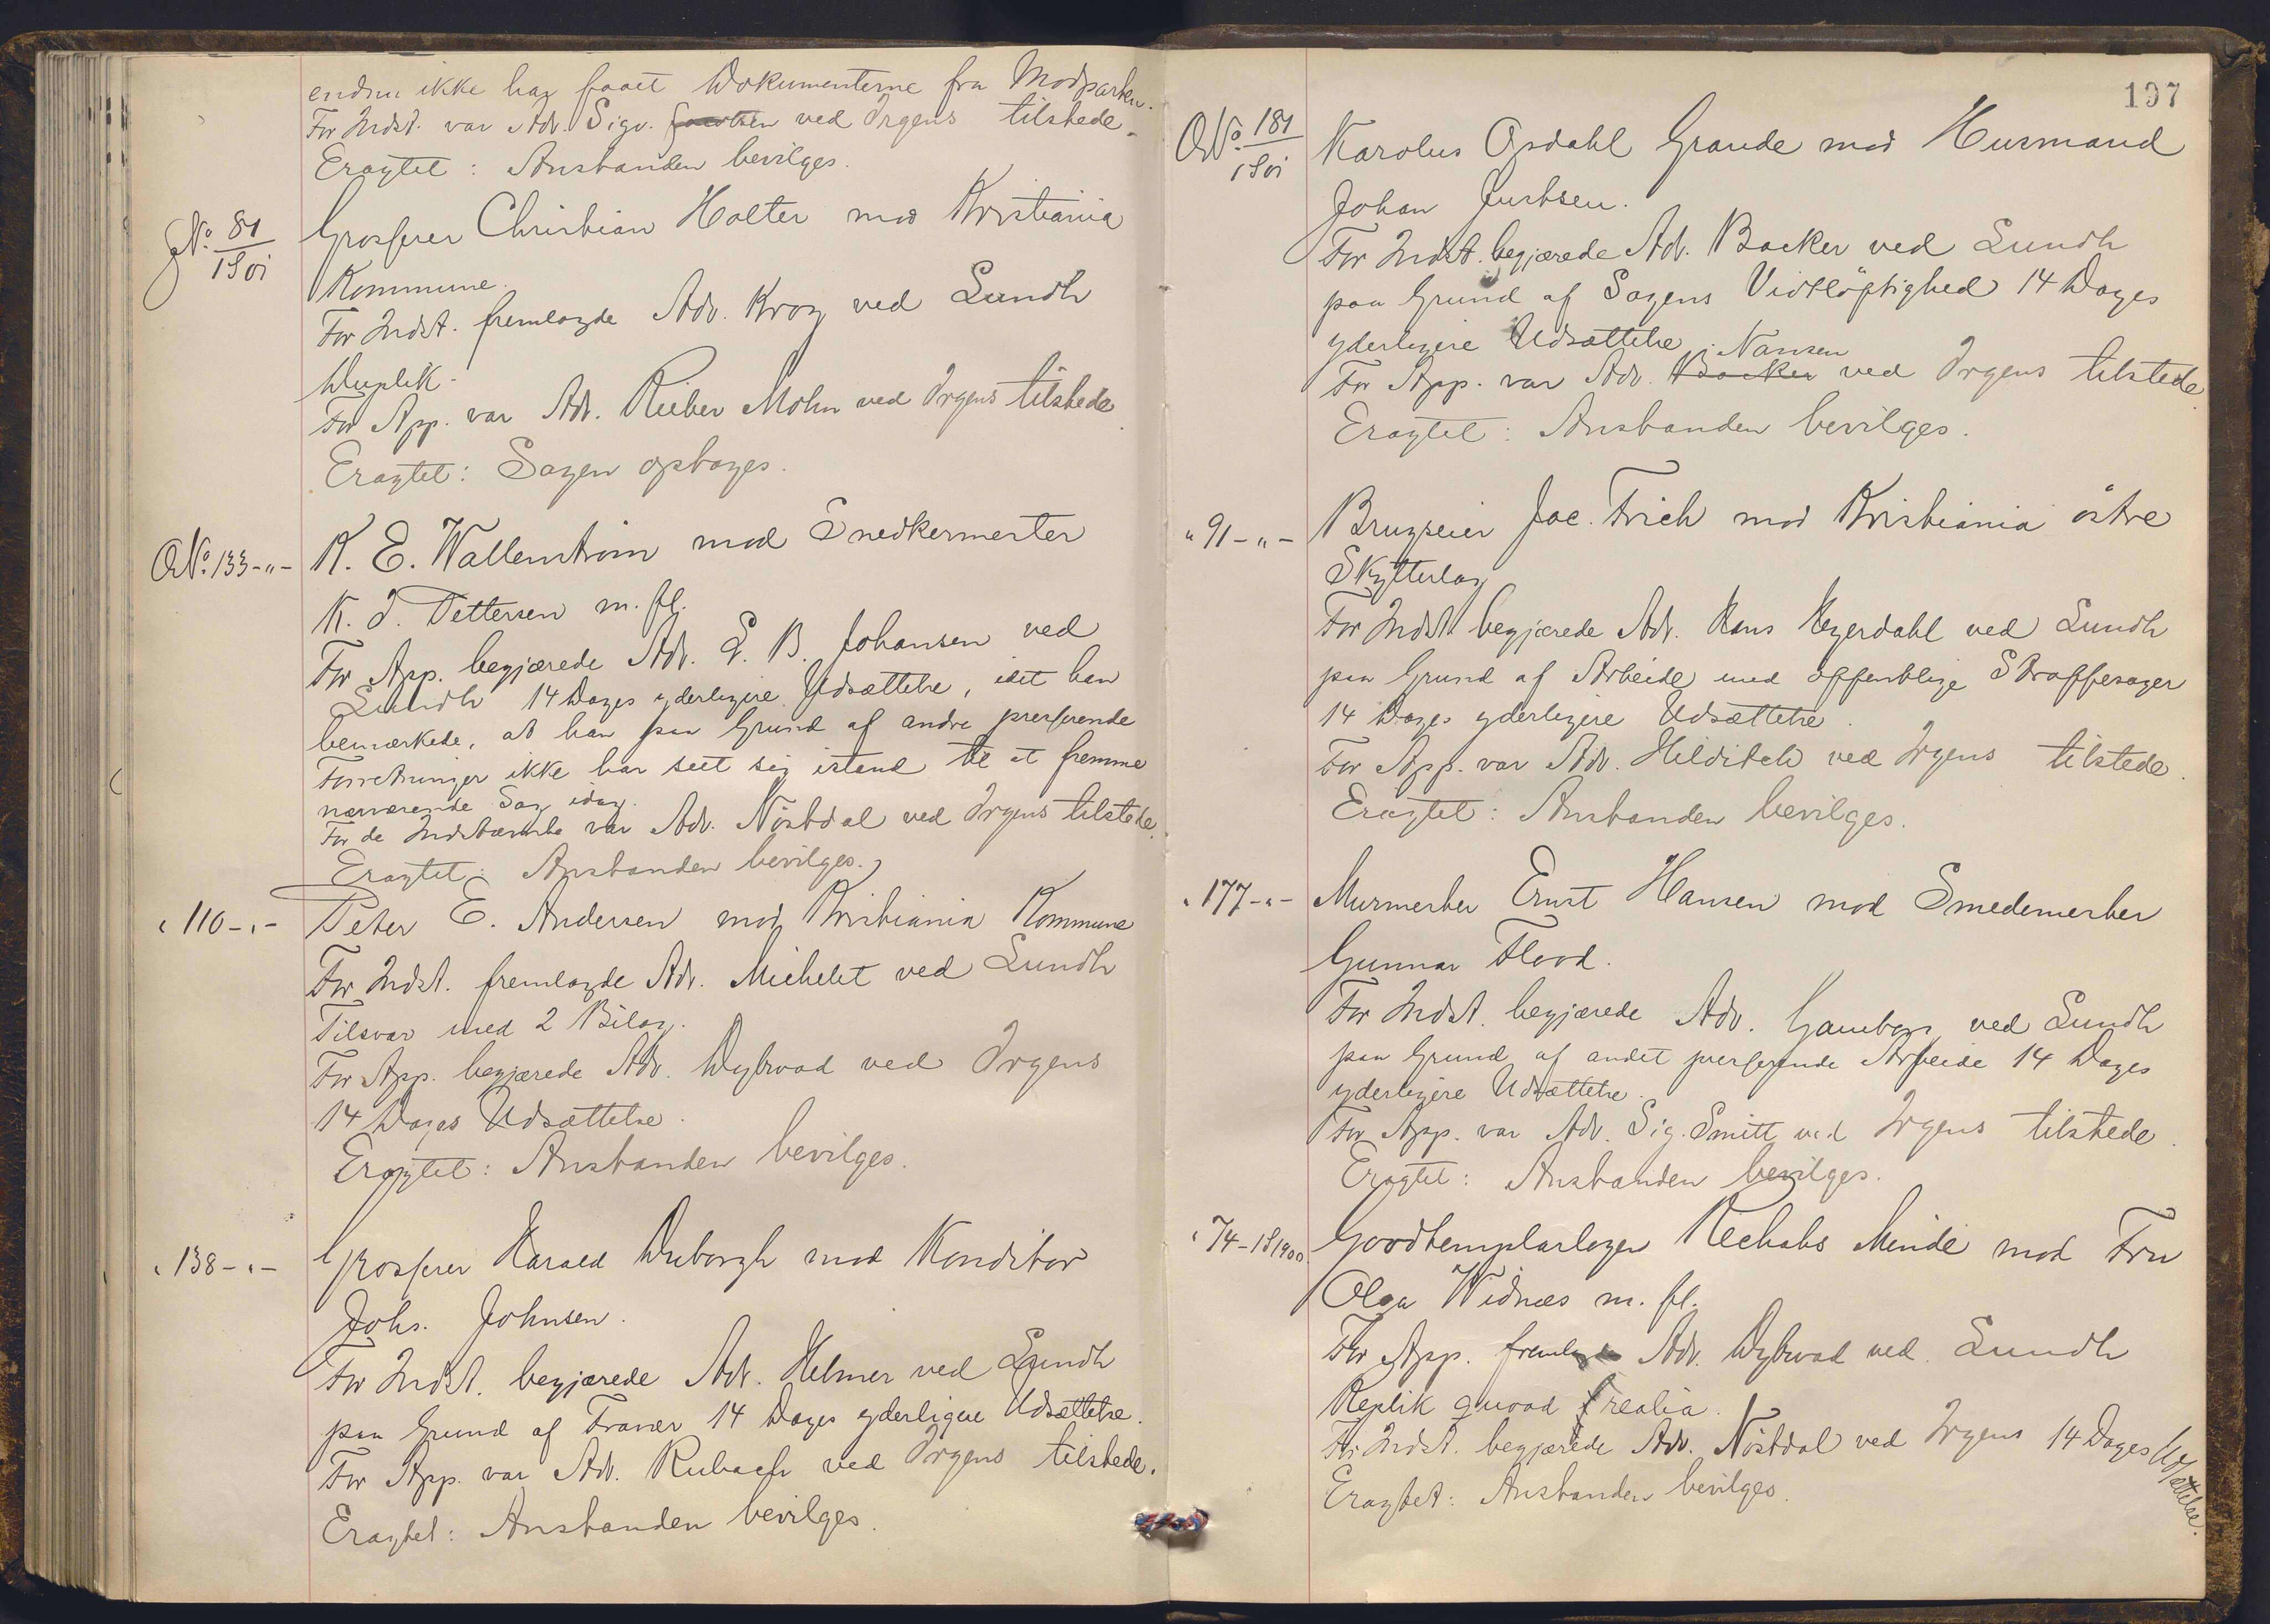 endnu ikke har faaet Dokumenterne fra Modparten.
For Indst. var Adv. Sigv. ved Irgens tilstede.
Eragtet: Anstanden bevilges.
No. 81/1901
Grosserer Christian Holter mod Kristiania
Kommune.
For Indst. fremlagde Adv. Krog ved Lundh
Duplik.
For App. var Adv. Rieber Mohn ved Irgens tilstede.
Eragtet: Sagen optages.
No. 133-"-
K. E. Wallenström mod Snedkermester
K. J. Pettersen m. fl.
For App. begjærede Adv. L. B. Johansen ved
Lundh 14 Dages yderligere Udsættelse, idet han
bemærkede, at han paa Grund af andre presserende
Forretninger ikke har seet sig istand til at fremme
nærværende Sag idag.
For de Indstævnte var Adv. Nöstdal ved Irgens tilstede.
Eragtet: Anstanden bevilges.
" 110-"-
Peter E. Andersen mod Kristiania Kommune
For Indst. fremlagde Adv. Michelet ved Lundh
Tilsvar med 2 Bilag.
For App. begjærede Adv. Dybwad ved Irgens
14 Dages Udsættelse.
Eragtet: Anstanden bevilges.
" 138-"-
Grosserer Harald Duborgh mod Konditor
Johs. Johnsen.
For Indst. begjærede Adv. Helmer ved Lundh
paa Grund af Fravær 14 Dages yderligere Udsættelse.
For App. var Adv. Rubach ved Irgens tilstede.
Eragtet: Anstanden bevilges.
197
No. 181/1901
Karolus Opdahl Grande mod Husmand
Johan Justsen.
For Indst. begjærede Adv. Backer ved Lundh
paa Grund af Sagens Vidtlöftighed 14 Dages
yderligere Udsættelse.
For App. var Adv. Backer Nansen ved Irgens tilstede.
Eragtet: Anstanden bevilges.
" 91-"-
Brugseier Jac. Frich mod Kristiania östre
Skytterlag
For Indst. begjærede Adv. Hans Heyerdahl ved Lundh
paa Grund af Arbeide med offentlige Straffesager
14 Dages yderligere Udsættelse.
For App. var Adv. Hilditch ved Irgens tilstede.
Eragtet: Anstanden bevilges.
" 177-"-
Murmester Ernst Hansen mod Smedemester
Gunnar Flood.
For Indst. begjærede Adv. Gamborg ved Lundh
paa Grund af andet presserende Arbeide 14 Dages
yderligere Udsættelse.
For App. var Adv. Sig. Smitt ved Irgens tilstede.
Eragtet: Anstanden bevilges.
" 74-1900
Goodtemplarlogen Rechabs Minde mod Fru
Olga Widnæs m. fl.
For App. fremlagde Adv. Dybwad ved Lundh
Replik quoad realia.
For Indst. begjærede Adv. Nöstdal ved Irgens 14 Dages Udsættelse.
Eragtet: Anstanden bevilges.